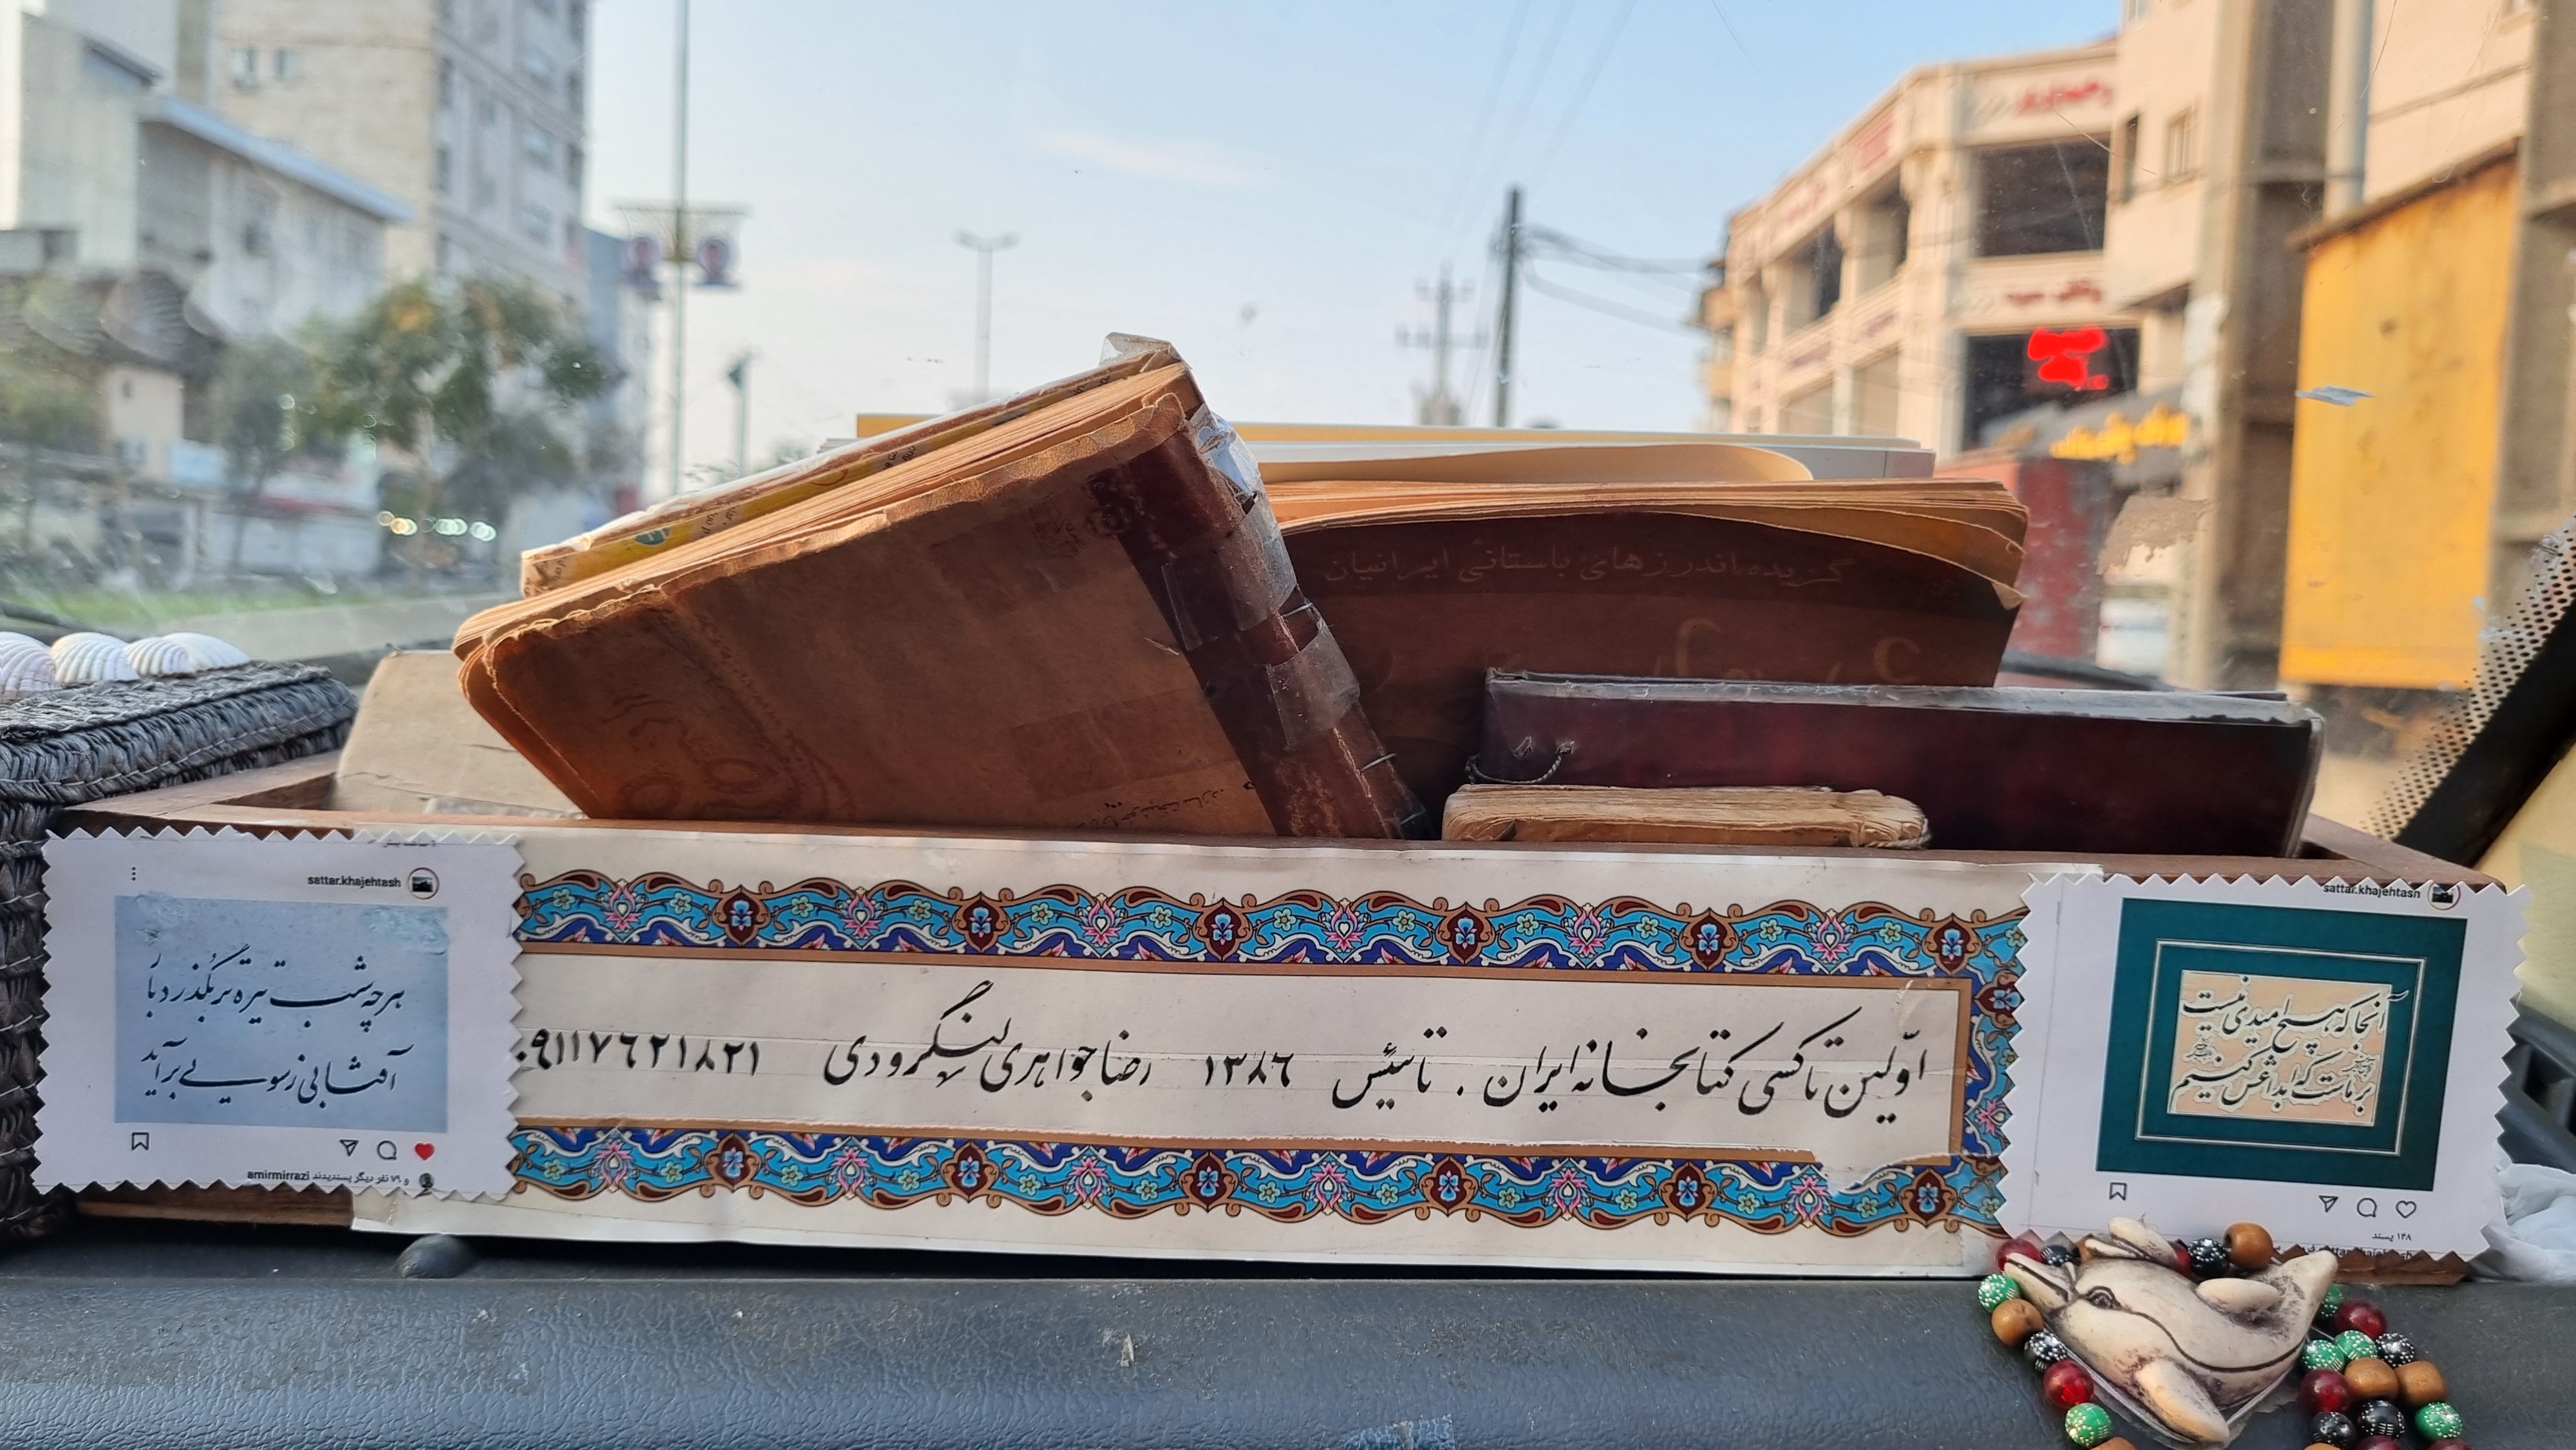 گزیده اندرزهای باستانی ایرانیان
sattar.khajehtash
هر چه شب تیره تر بگذرد باز
آفتابی ز سویی برآید
amirmirrazi و ۷۹ نفر دیگر پسندیدند
اوّلین تاکسی کتابخانه ایران . تأسیس ۱۳۸۶ رضا جواهری لنگرودی ۰۹۱۱۷۶۲۱۸۲۱
sattar.khajehtash
آنجا که هیچ امیدی نیست
بر ماست که ابداعش کنیم
۱۴۸ پسند